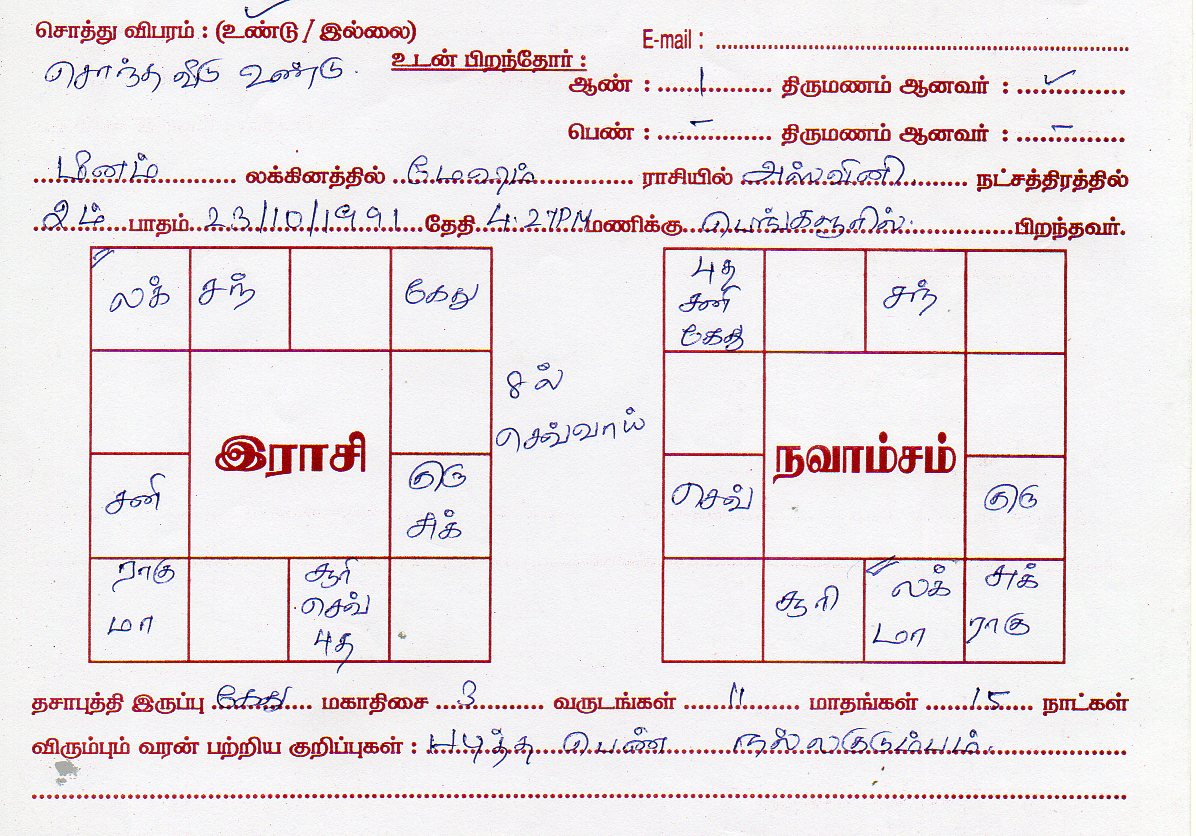 சொத்து விபரம் : (உண்டு / இல்லை)
சொந்த வீடு உண்டு.
E-mail : ........................
உடன் பிறந்தோர் :
ஆண் : ...... 1 ...... திருமணம் ஆனவர் : ... ✓ ...
பெண் : ...... – ...... திருமணம் ஆனவர் : ... – ...
மீனம் லக்கினத்தில் மேஷம் ராசியில் அஸ்வினி நட்சத்திரத்தில்
2ம் பாதம் 23/10/1991 தேதி 4.27PM மணிக்கு பெங்களூரில் பிறந்தவர்.
லக் சந் கேது
சனி
குரு
சுக்
ராகு
மா
சூரி
செவ்
புத
இராசி
8 ல்
செவ்வாய்
புத
சனி
கேது
சந்
செவ்
குரு
சூரி
லக்
மா
சுக்
ராகு
நவாம்சம்
தசாபுத்தி இருப்பு கேது மகாதிசை 3 வருடங்கள் 11 மாதங்கள் 15 நாட்கள்
விரும்பும் வரன் பற்றிய குறிப்புகள் : படித்த பெண் நல்லகுடும்பம்.